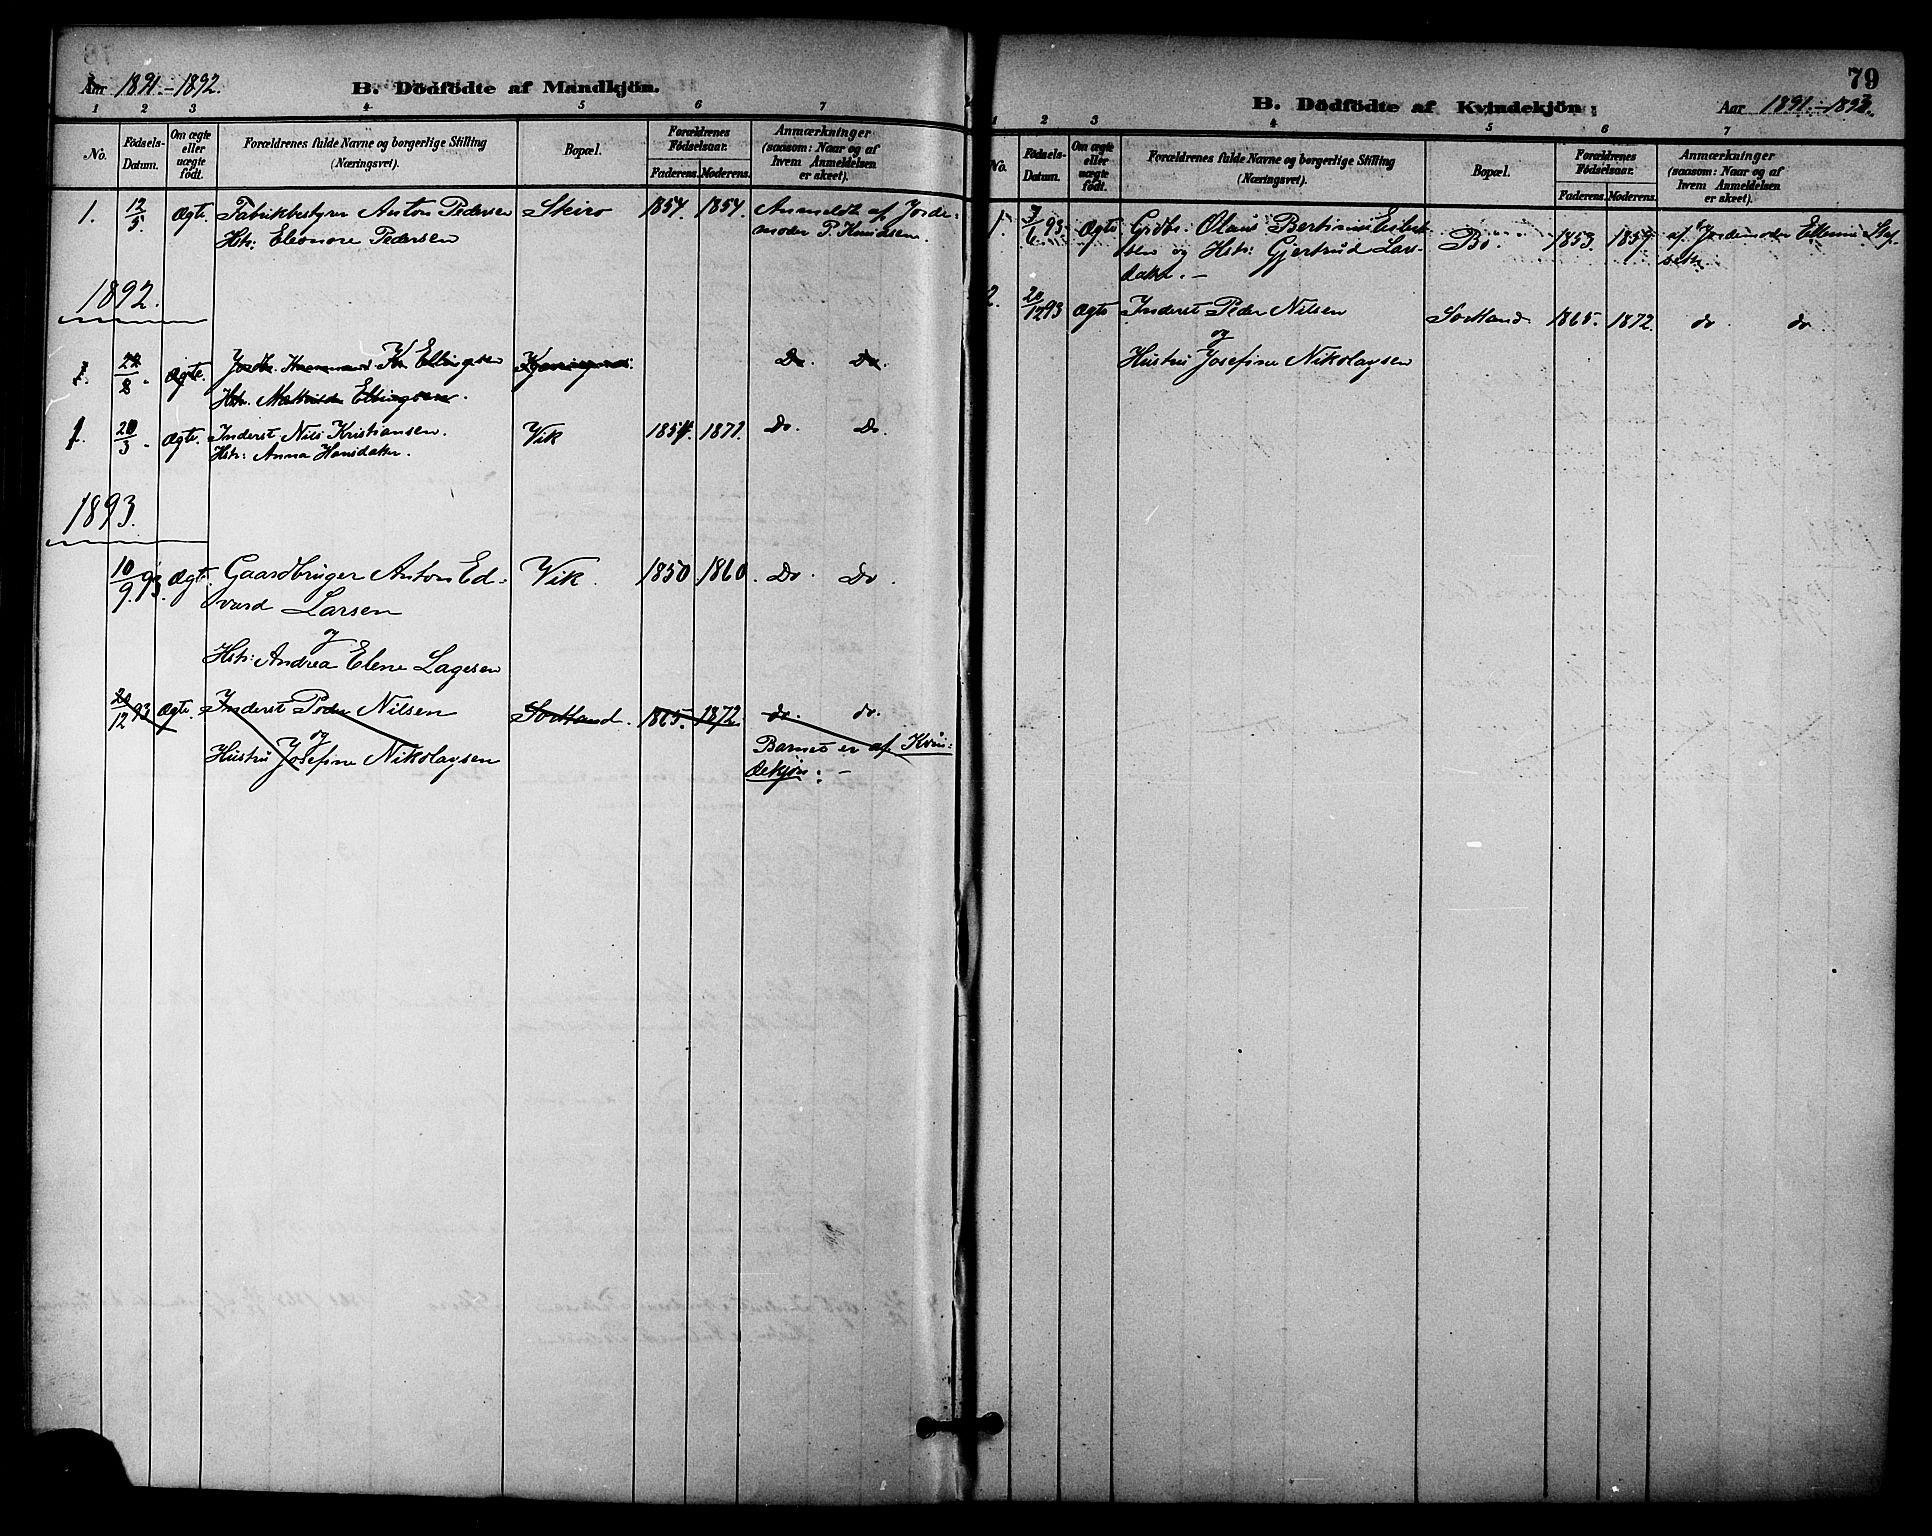 Aar 1891.-1892. B. Dödfödte af Mandkjön.
1 2 3 4 5 6 7
No. Födsels-Datum. Om ægte eller uægte födt. Forældrenes fulde Navne og borgerlige Stilling (Næringsvei). Bopæl. Forældrenes Födselsaar. Faderens. Moderens. Anmærkninger (saasom: Naar og af hvem Anmeldelsen er skeet).
1. 12/5. Ægte. Fabrikbestyrer Anton Pedersen Skeiro 1854. 1854. Anmeldt af Jorde-
Hstr: Eleonore Pedersen moder P. Knudsen.
1892.
1. 8. Ægte. Ellingsen Do. Do.
Hstr. Mathilde Ellingsen.
1. 20/3. Ægte. Inderst Nils Kristiansen. Vik 1854. 1871. Do. Do.
Hstr: Anna Hansdatter.
1893.
10/9.93. Ægte. Gaardbruger Anton Ed- Vik. 1850. 1860. Do. Do.
vard Larsen
og
Hstr: Andrea Elene Lagesen
20/12 93 Ægte. Inderst Peder Nilsen Sortland. 1865. 1872. do. do.
og
Hustru Josefine Nikolaysen Barnet er af Kvin-
dekjön: -
79
B. Dödfödte af Kvindekjön; Aar 1891.-1893.
1 2 3 4 5 6 7
No. Födsels-Datum. Om ægte eller uægte födt. Forældrenes fulde Navne og borgerlige Stilling (Næringsvei). Bopæl. Forældrenes Födselsaar. Faderens. Moderens. Anmærkninger (saasom: Naar og af hvem Anmeldelsen er skeet).
1. 7/6 93. Ægte Grdbr: Olaus Bertinus Bö 1853. 1857. af Jordemoder
sen og Hstr: Gjertrud Lars-
datter. -
2. 20/12 93 Ægte Inderst Peder Nilsen Sortland 1865. 1872. do do
og
Hustru Josefine Nikolaysen